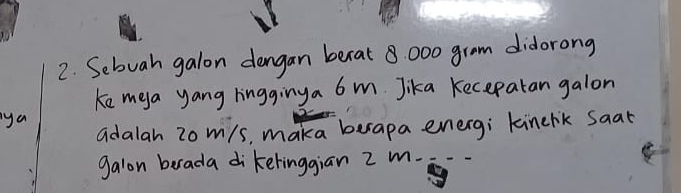 2. Sebuah galon dengan berat 8.000 gram didorong
ke meja yang tingginya 6 m. Jika kecepatan galon
adalah 20 m/s, maka berapa energi kinetik saat
galon berada di ketinggian 2 m----